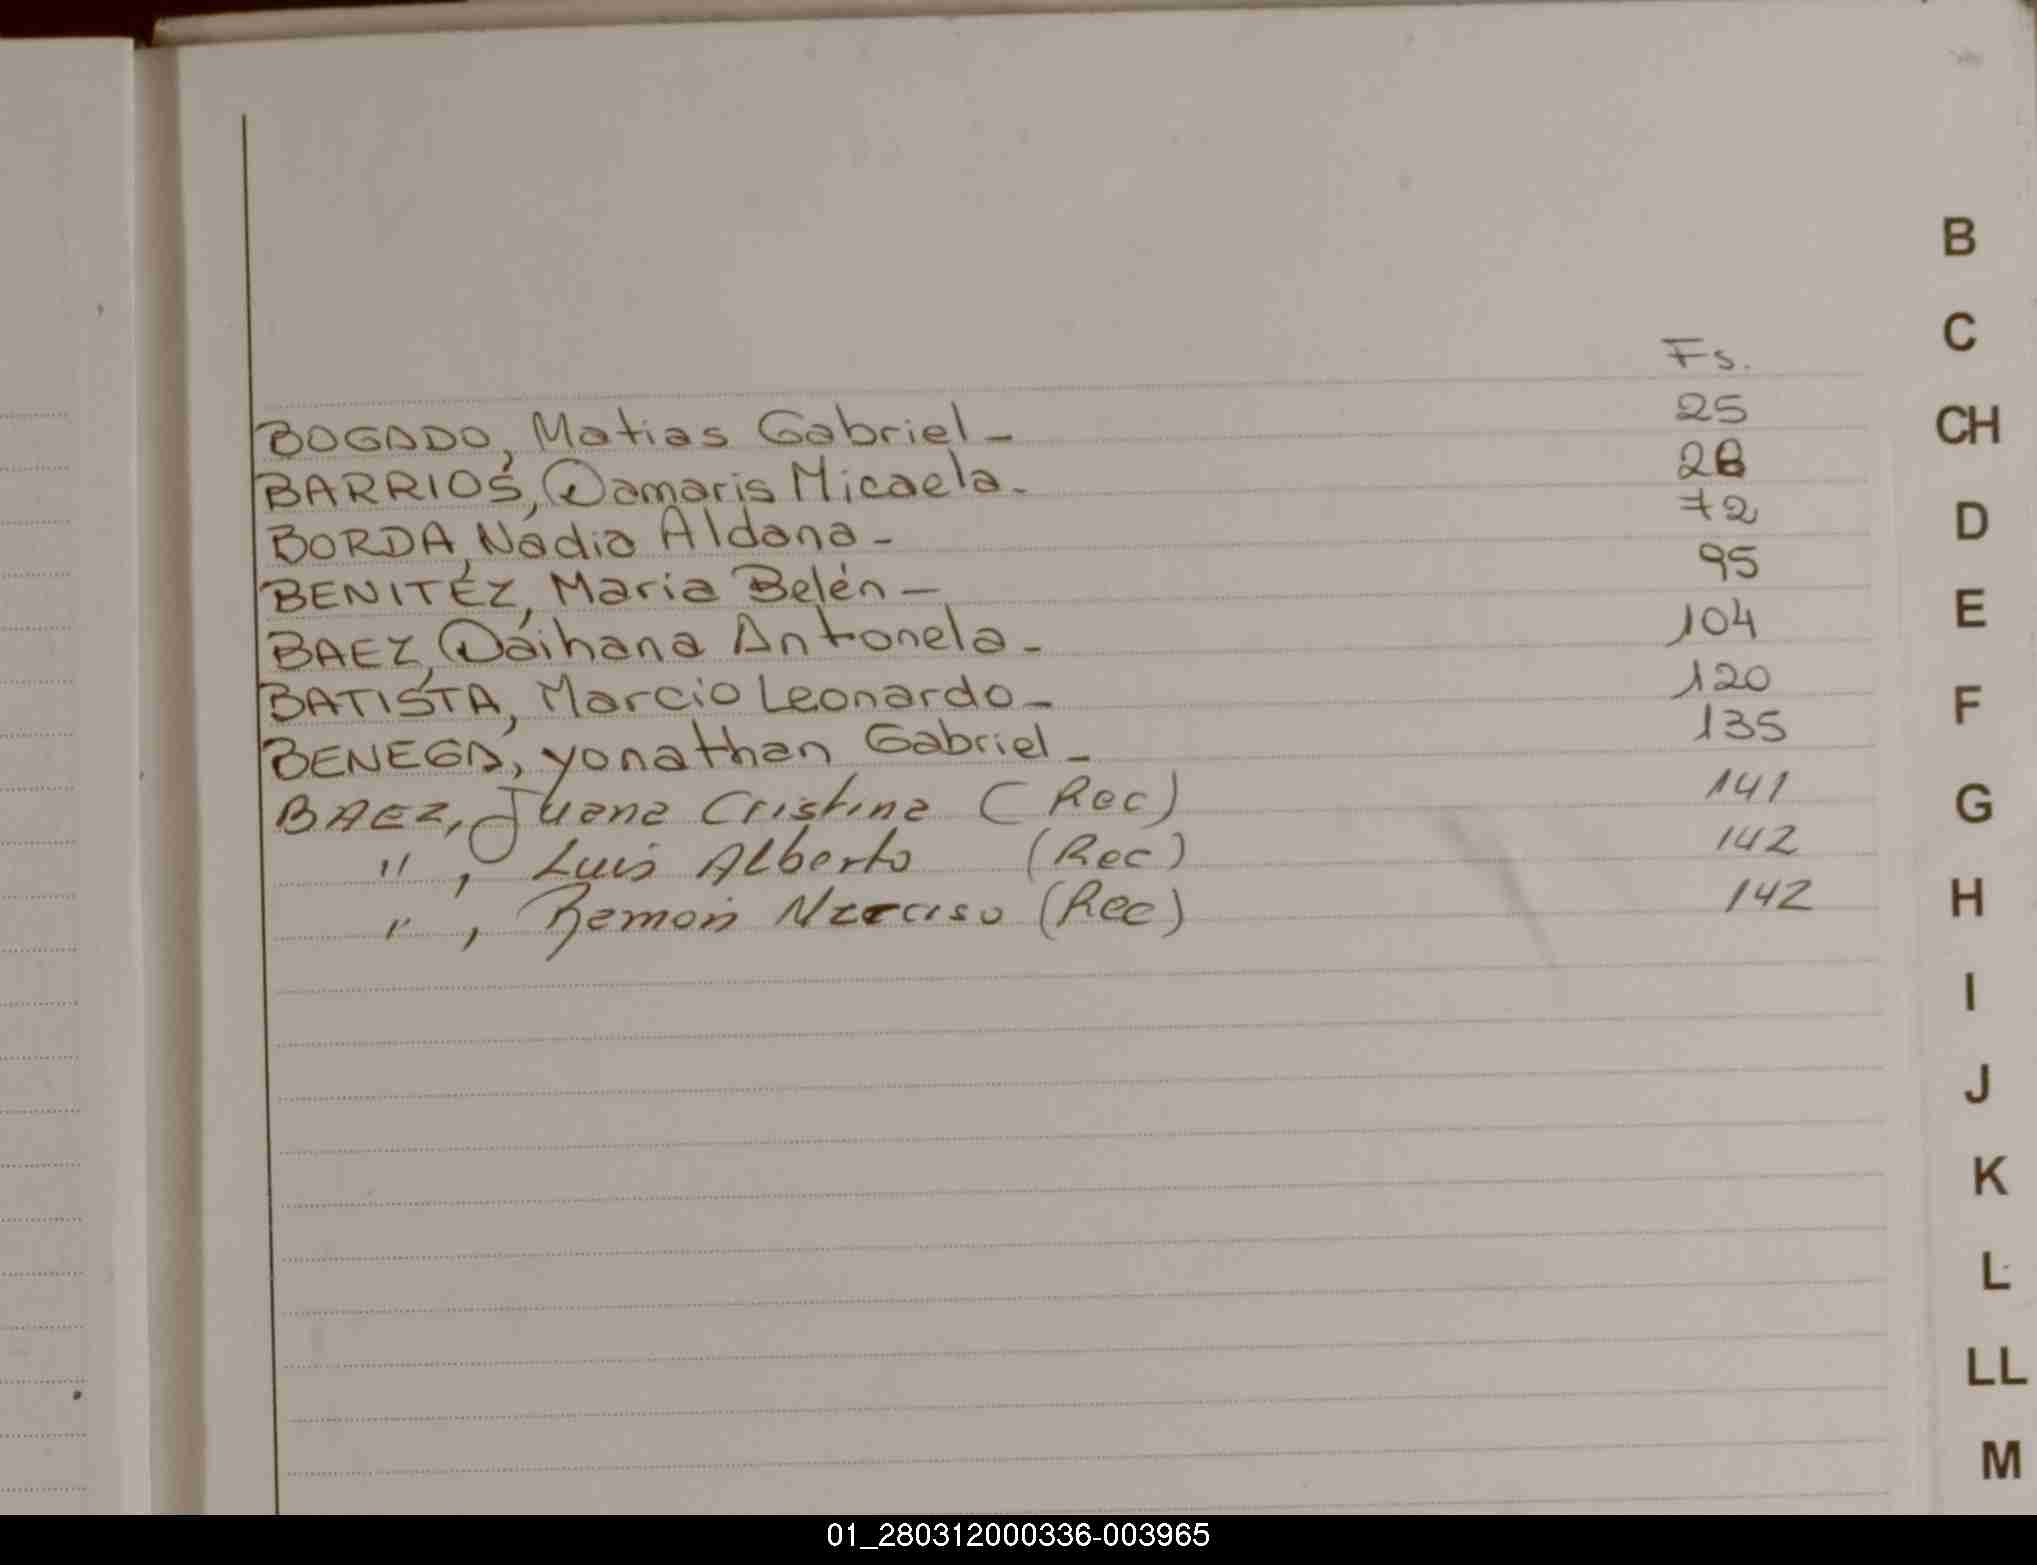 Fs.
BOGADO, Matias Gabriel - 25
BARRIOS, Damaris Micaela - 28
BORDA, Nadia Aldana - 72
BENITEZ, Maria Belén - 95
BAEZ, Daihana Antonela - 104
BATISTA, Marcio Leonardo - 120
BENEGA, yonathan Gabriel - 135
BAEZ, Juana Cristina (Rec) 141
" , Luis Alberto (Rec) 142
" , Ramón Narciso (Rec) 142
B
C
CH
D
E
F
G
H
I
J
K
L
LL
M
01_280312000336-003965